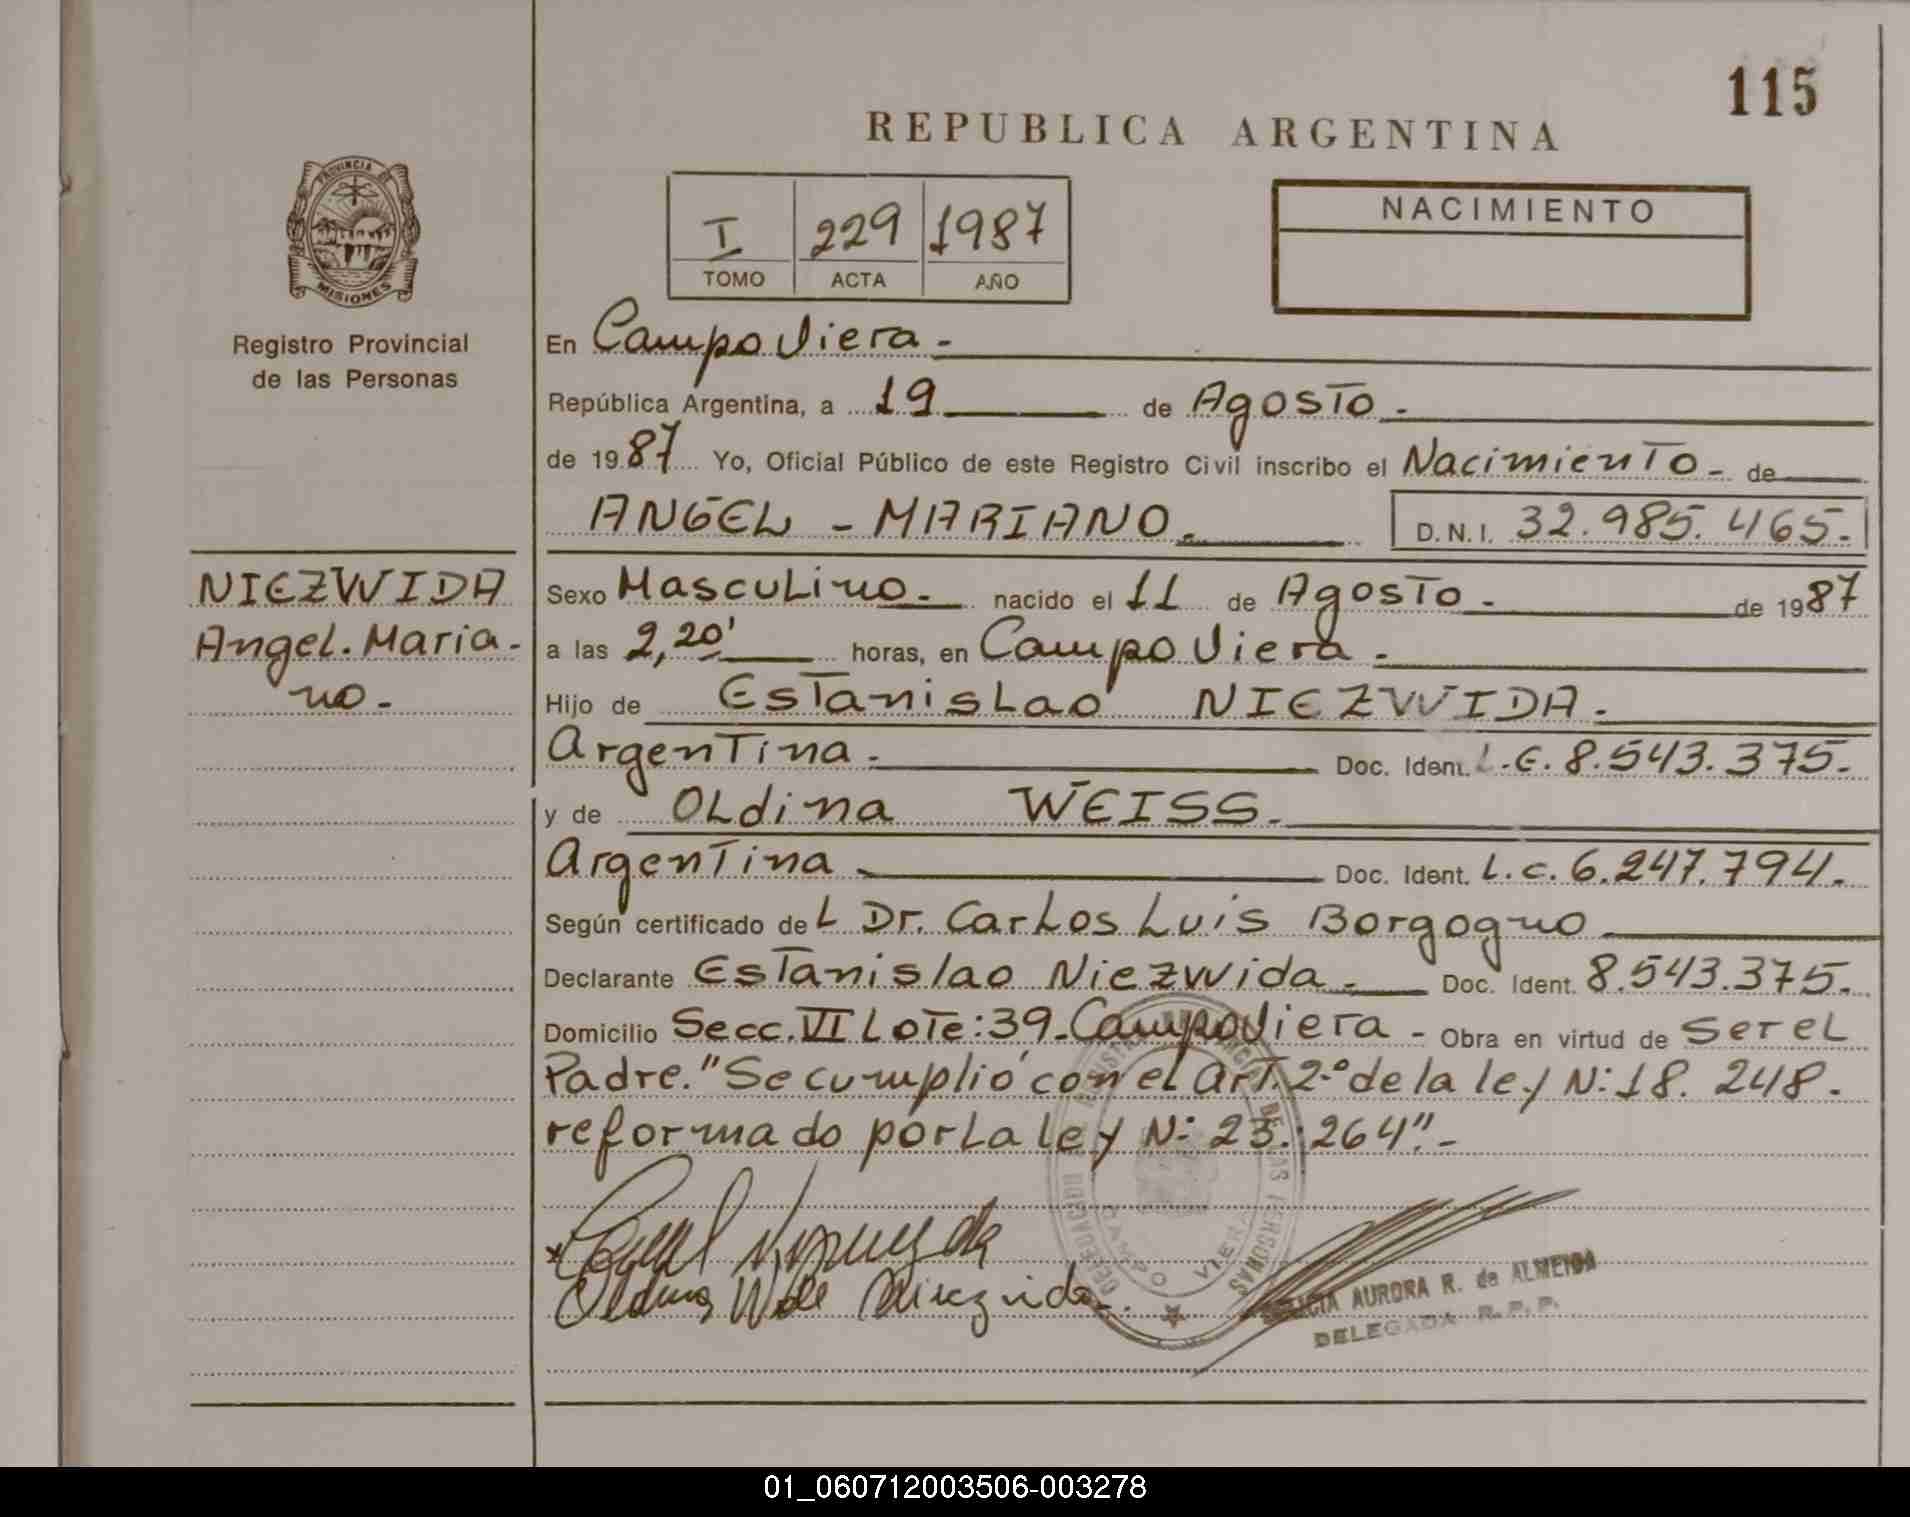 115
REPUBLICA ARGENTINA
PROVINCIA DE
MISIONES
Registro Provincial
de las Personas
I 229 1987
TOMO ACTA AÑO
NACIMIENTO
En Campo Viera.-
República Argentina, a 19 de Agosto.-
de 1987 Yo, Oficial Público de este Registro Civil inscribo el Nacimiento - de
ANGEL - MARIANO.- D.N.I. 32.985.465.-
NIEZWIDA
Angel. Maria-
no.-
Sexo Masculino.- nacido el 11 de Agosto.- de 1987
a las 2,20' horas, en Campo Viera.-
Hijo de Estanislao NIEZWIDA.-
Argentina.- Doc. Ident. L.E. 8.543.375.-
y de Oldina WEISS.-
Argentina.- Doc. Ident. L.C. 6.247.794.-
Según certificado del Dr. Carlos Luis Borgogno
Declarante Estanislao Niezwida.- Doc. Ident. 8.543.375.-
Domicilio Secc. VI Lote: 39-Campo Viera - Obra en virtud de ser el
Padre. "Se cumplió con el Art. 2º de la ley N: 18.248.-
reformado por la ley N: 23.264".-
DELEGACION REGISTRO PROVINCIAL DE LAS PERSONAS
CAMPO VIERA
AURORA R. de ALMEIDA
DELEGADA R.P.P.
01_060712003506-003278